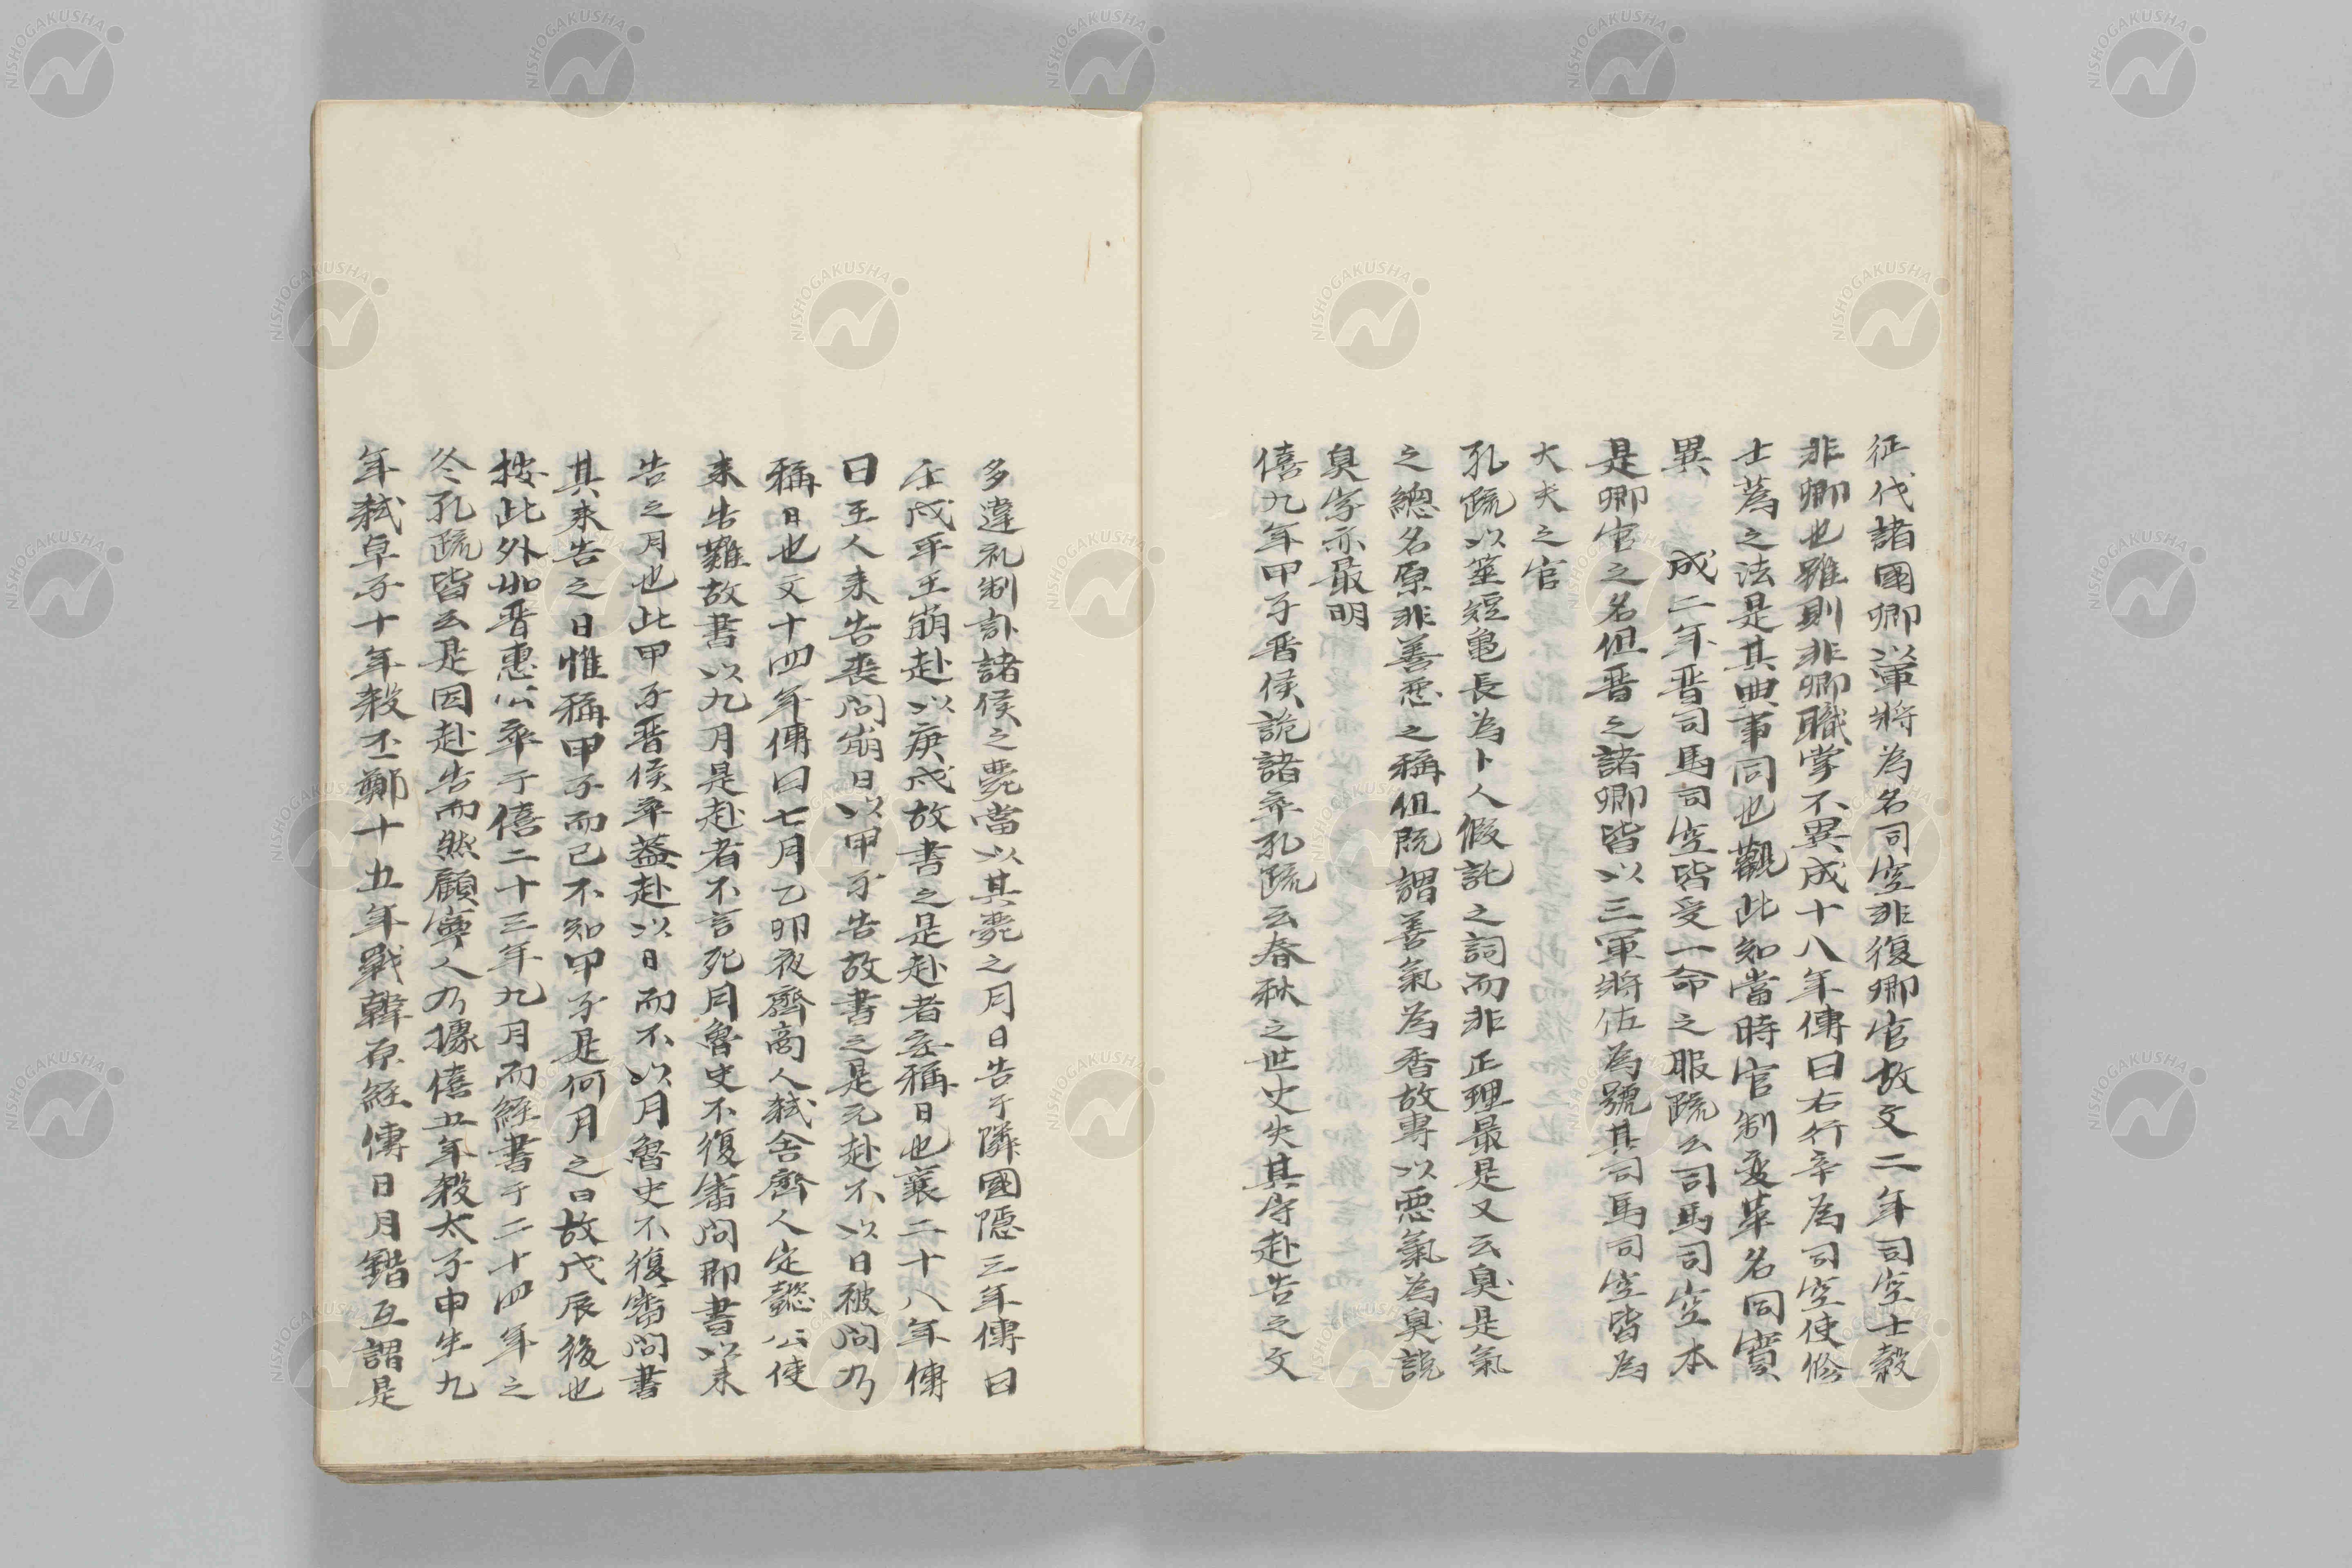 征伐諸國卿以軍將為名司空非復卿官故文二年司空士縠
非卿也雖則非卿職掌不異成十八年傳曰右行辛為司空使修
士蒍之法是其典事同也觀此知當時官制変革名同實
異　　成二年晋司馬司空皆受一命之服疏云司馬司空本
是卿官之名但晋之諸卿皆以三軍將佐為號其司馬司空皆為
大夫之官
孔疏以筮短龜長為卜人假託之詞而非正理最是又云臭是氣
之總名原非善悪之稱但既謂善氣為香故專以悪氣為臭説
臭字亦最明
僖九年甲子晋侯詭諸卒孔疏云春秋之世史失其守赴告之文
多違礼制訃諸侯之薨當以其薨之月日告于隣國隠三年傳曰
壬戌平王崩赴以庚戌故書之是赴者妄稱日也襄二十八年傳
曰王人来告喪問崩日以甲子告故書之是元赴不以日被問乃
稱日也文十四年傳曰七月乙卯夜齊商人弑舍齊人定懿公使
来告難故書以九月是赴者不言死月魯史不復審問即書以来
告之月也此甲子晋侯卒蓋赴以日而不以月魯史不復審問書
其来告之日惟稱甲子而已不知甲子是何月之日故戊辰後也
按此外如晋惠公卒于僖二十三年九月而經書于二十四年之
冬孔疏皆云是因赴告而然顧寧人乃據僖五年殺太子申生九
年弑卓子十年殺丕鄭十五年戰韓原經傳日月錯互謂是